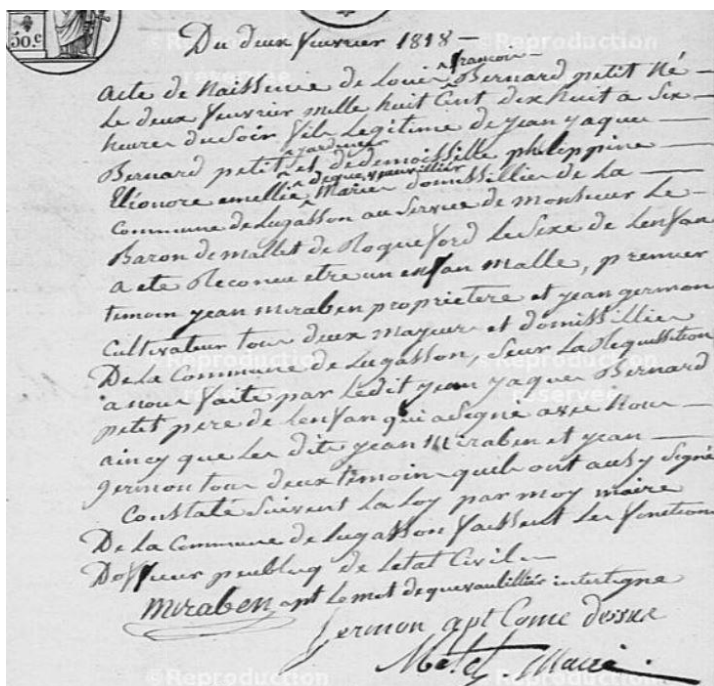 50.c
Du deux feuvrier 1818 —
françoi
acte de Naissence de Louis Bernard petit Né —
Le deux feuvrier mille huit Cent dix huit a Six
heures du Soir fils Legitime de jean jaque —
jardinier
Bernard petit et de demoissille phileppine —
dequevauvillier
Elionore emellie Marie domissillier de La —
Commune de Lugasson au Service de monsieur Le
Baron de mallet de Roqueford Le Sixe de Lenfan
a ete Reconeu etre un enfan malle, premier
temoin jean miraben proprietere et jean germon
Cultivateur tous deux majeur et domissillier
De La Commune de Lugasson, Seur La Requissition
a nous faite par Ledit jean jaque Bernard
petit pere de Lenfan qui a Signé avec nous —
aincy que Les dits jean Miraben et jean —
germon tous deux temoin quib ont ausy Signé
Constaté Suivent La Loy par moy maire
De La Commune de Lugasson faissent Les fonction
Doffieur peublicq de Letat Civil —
Miraben apt Le mot dequevaubillier interligne
germon apt Come dessus
Maire